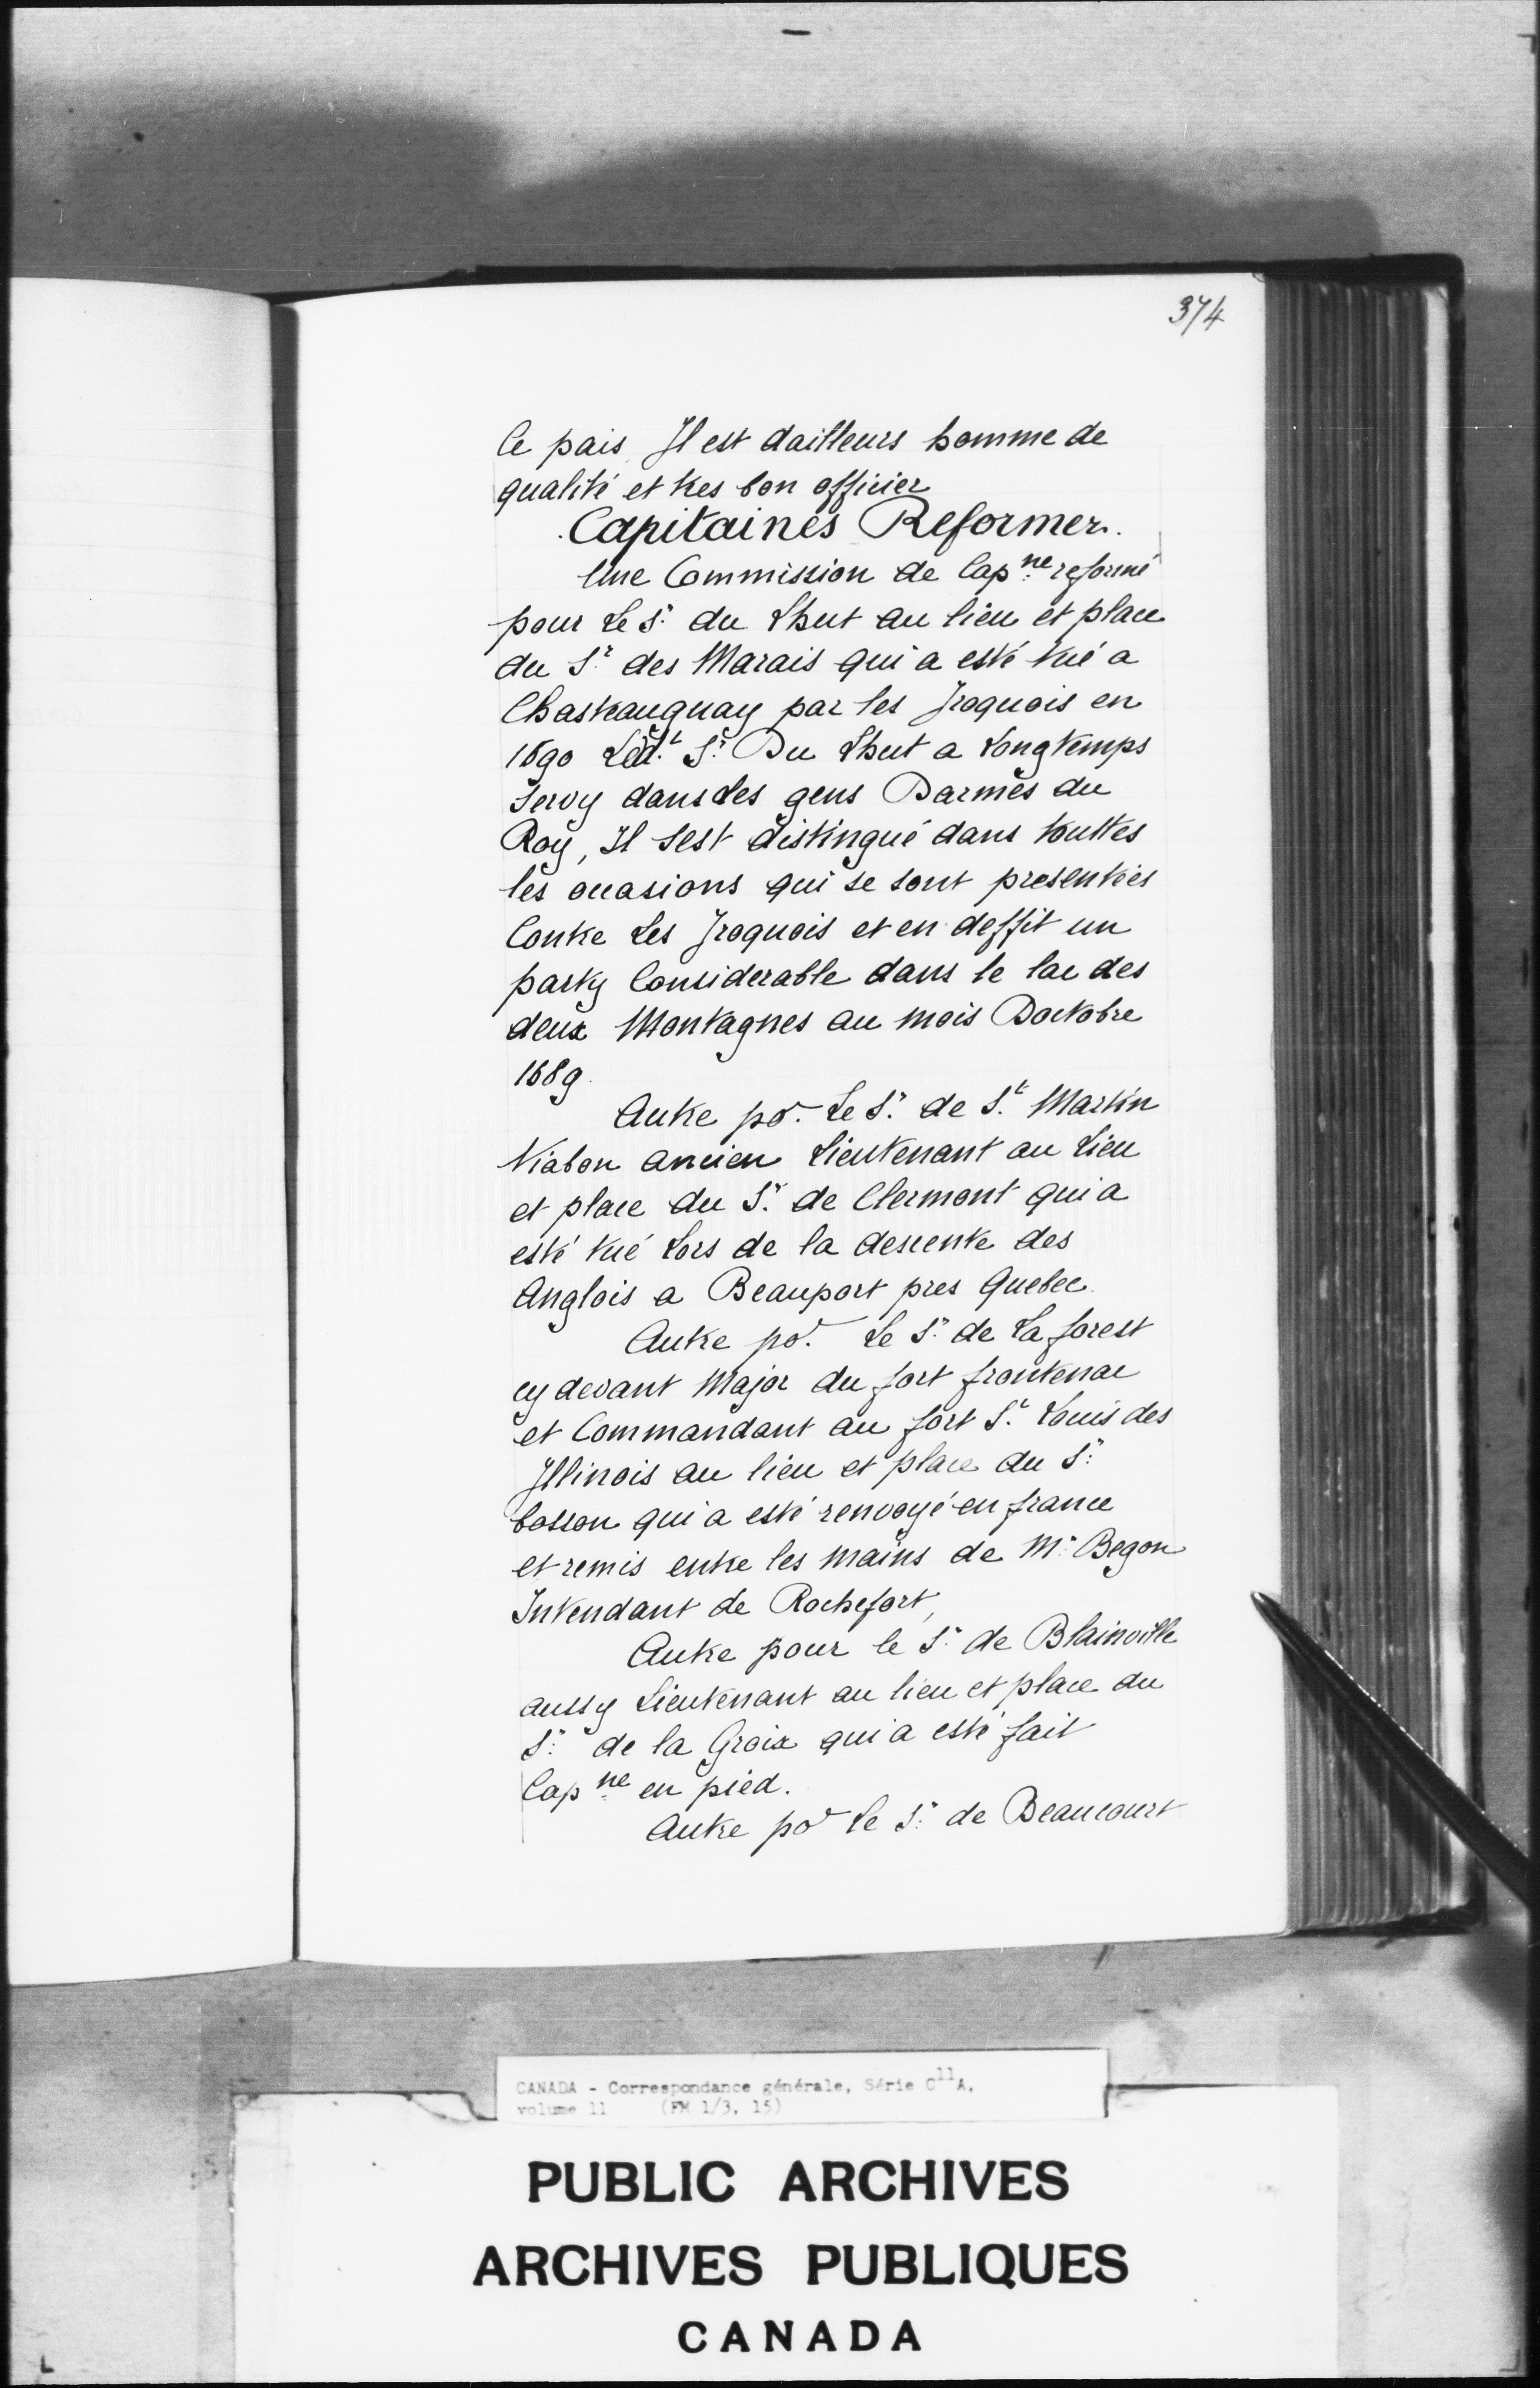 374
Ce pais Il est dailleurs homme de
qualité et tres bon officier
Capitaines Reformer.
Une Commission de Capne reformé
pour Le Sr du Lhut au lieu et place
du Sr des Marais qui a esté tué a
Chasteauguay par les Iroquois en
1690 Ledt Sr Du Lhut a Longtemps
servy dans Les gens Darmes du
Roy, Il sest distingué dans touttes
les occasions qui se sont presentées
Contre Les Iroquois et en deffit un
party Considerable dans le lac des
deux Montagnes au mois Doctobre
1689.
Autre por Le Sr de St Martin
ancien Lieutenant au Lieu
et place du Sr de Clermont qui a
esté tué Lors de la descente des
Anglois a Beauport pres Quebec
Autre por Le Sr de La forest
cy devant Major du fort frontenac
et Commandant au fort St Louis des
Illinois au lieu et place du Sr
bosson qui a esté renvoyé en france
et remis entre les mains de Mr Begon
Intendant de Rochefort,
Autre pour le Sr de Blainville
aussy Lieutenant au lieu et place du
Sr de la Groix qui a esté fait
Capne en pied.
Autre por le Sr de Beaucourt
CANADA - Correspondance générale, Série C11A,
volume 11 (FM 1/3, 15)
PUBLIC ARCHIVES
ARCHIVES PUBLIQUES
CANADA